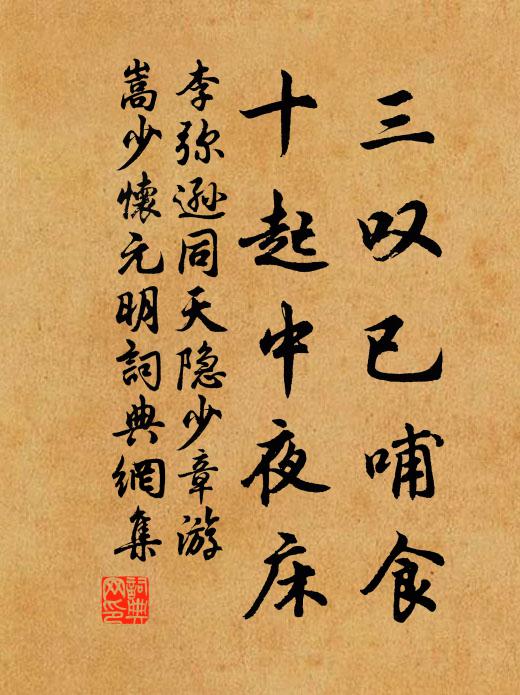 三叹已哺食
十起中夜床
李弥逊同天隐少章游
嵩少怀元明詞典網集
詞典网印